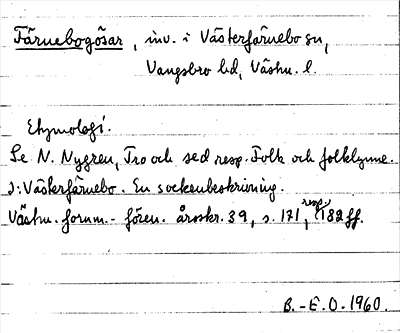 Färnebogösar, inv. i Västerfärnebo sn,
Vangsbro hd, Västm. l.
Etymologi.
Se N. Nygren, Tro och sed resp. Folk och folklynne.
I: Västerfärnebo. En sockenbeskrivning.
Västm. fornm.-fören. årsskr. 39, s. 171, resp. 182 ff.
B.-E.O. 1960.